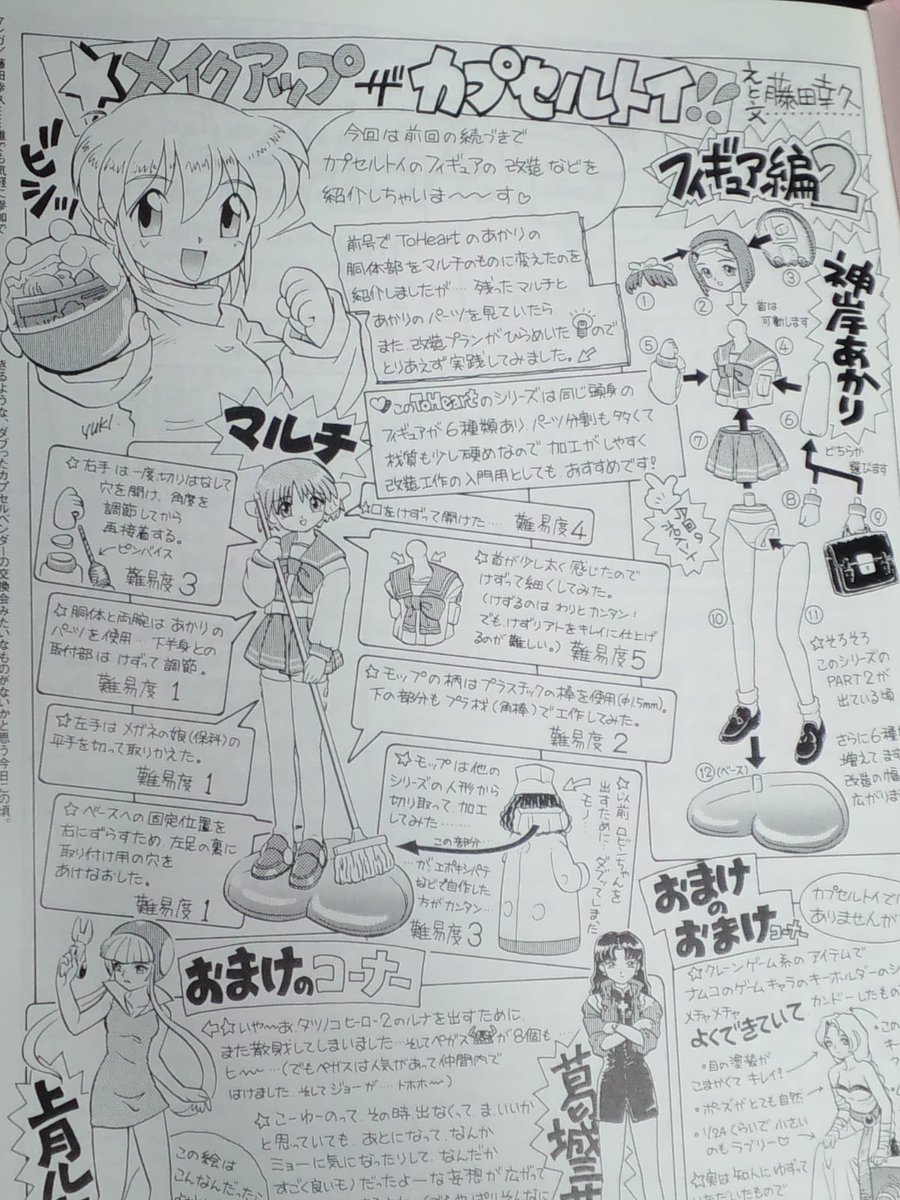 ☆メイクアップ ザ カプセルトイ!!
えと文 藤田幸久
フィギュア編2
ビシッ
今回は前回の続づきで
カプセルトイのフィギュアの改造などを
紹介しちゃいま〜〜す♡
前号でToHeartのあかりの
胴体部をマルチのものに変えたのを
紹介しましたが… 残ったマルチと
あかりのパーツを見ていたら
また改造プランがひらめいたので
とりあえず実践してみました。
このToHeartのシリーズは同じ頭身の
フィギュアが6種類あり パーツ分割も多くて
材質も少し硬めなので加工がしやすく
改造工作の入門用としても、おすすめです!
今回のポイント
yuki.
神岸あかり
①
②
③
首は
可動します
④
⑤
⑥
⑦
どちらか
選びます
⑧
⑨
⑩
⑪
⑫(ベース)
☆そろそろ
このシリーズの
PART2が
出ている頃
さらに6種
増えてます
改造の幅
広がりま
マルチ
☆右手は一度切りはなして
穴を開け、角度を
調節してから
再接着する。
ピンバイス
難易度3
☆口をけずって開けた… 難易度4
☆首が少し太く感じたので
けずって細くしてみた。
(けずるのは わりとカンタン!
でもけずりアトをキレイに仕上げ
るのが難しい。) 難易度5
☆胴体と両腕はあかりの
パーツを使用… 下半身との
取付部は けずって調節。
難易度1
☆モップの柄はプラスチックの棒を使用(φ1.5mm)。
下の部分もプラ材(角棒)で工作してみた。
難易度2
☆左手はメガネの娘(保科)の
平手を切って取りかえた。
難易度1
☆モップは他の
シリーズの人形から
切り取って、加工
してみた………
この部分
…が、エポキシパテ
などで自作した
方がカンタン…
難易度3
☆以前ロビンちゃんを
出すために…ダブッてしまった
モノ…
☆ベースへの固定位置を
右にずらすため、左足の裏に
取り付け用の穴を
あけなおした。
難易度1
おまけのコーナー
☆いや〜あ、タツノコヒーロー2のルナを出すために
また散財してしまいました…そしてペガスが8個も…
ヒ〜〜(でもペガスは人気があって仲間内で
はけました。そしてジョーが……トホホ〜)
☆こーゆーのって、その時、出なくって、ま、いいか
と思っていても、あとになって、なんか
ミョーに気になったりして、なんだか
すごく良いモノだったよーな妄想が広がって
上月ル
この絵は
こんなんだったら
葛城三
おまけの
おまけコーナー
カプセルトイで
ありませんが
☆クレーンゲーム系のアイテムで
ナムコのゲームキャラのキーホルダーのシ
メチャメチャ
よくできていて
カンドーしたもの
・目の塗装が
こまかくてキレイ!
・ポーズがとても自然
・1/24くらいで小さい
のもラブリー♡
☆実は知人にゆずって
いただいたもので
きるような、ダブったカプセルベンダーの交換会みたいなものがないかと思う今日この頃。